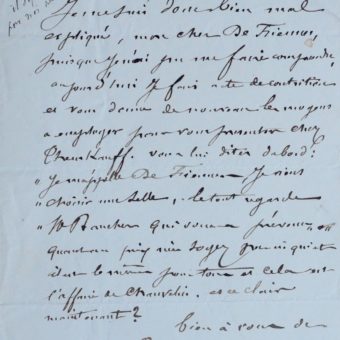 Je me suis donc bien mal
expliqué, mon cher De Friennes,
puisque je n'ai pu me faire comprendre
aujourd'hui je fais acte de contrition
et vous donne de nouveau les moyens
à employer pour vous presenter chez
vous lui dites d'abord:
"Je m'appelle De Friennes Je viens
choisir une selle, le tout regarde
Mr qui vous a prévenu,
quant au prix n'en soyez pas inquiet
c'est le même pour tous et cela est
l'affaire de Chauvelin. est-ce clair
maintenant?
bien à vous de